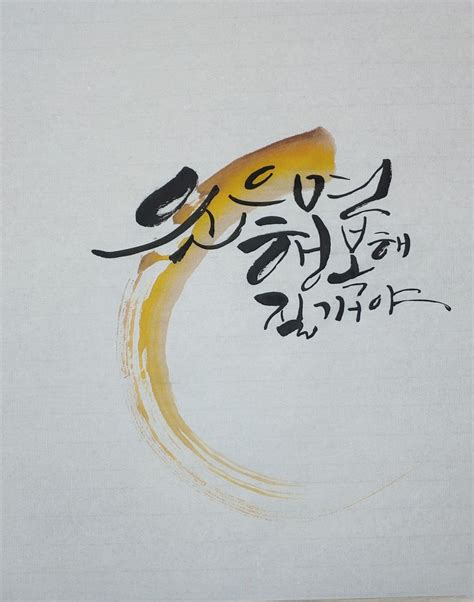 웃으면
행복해
질거야